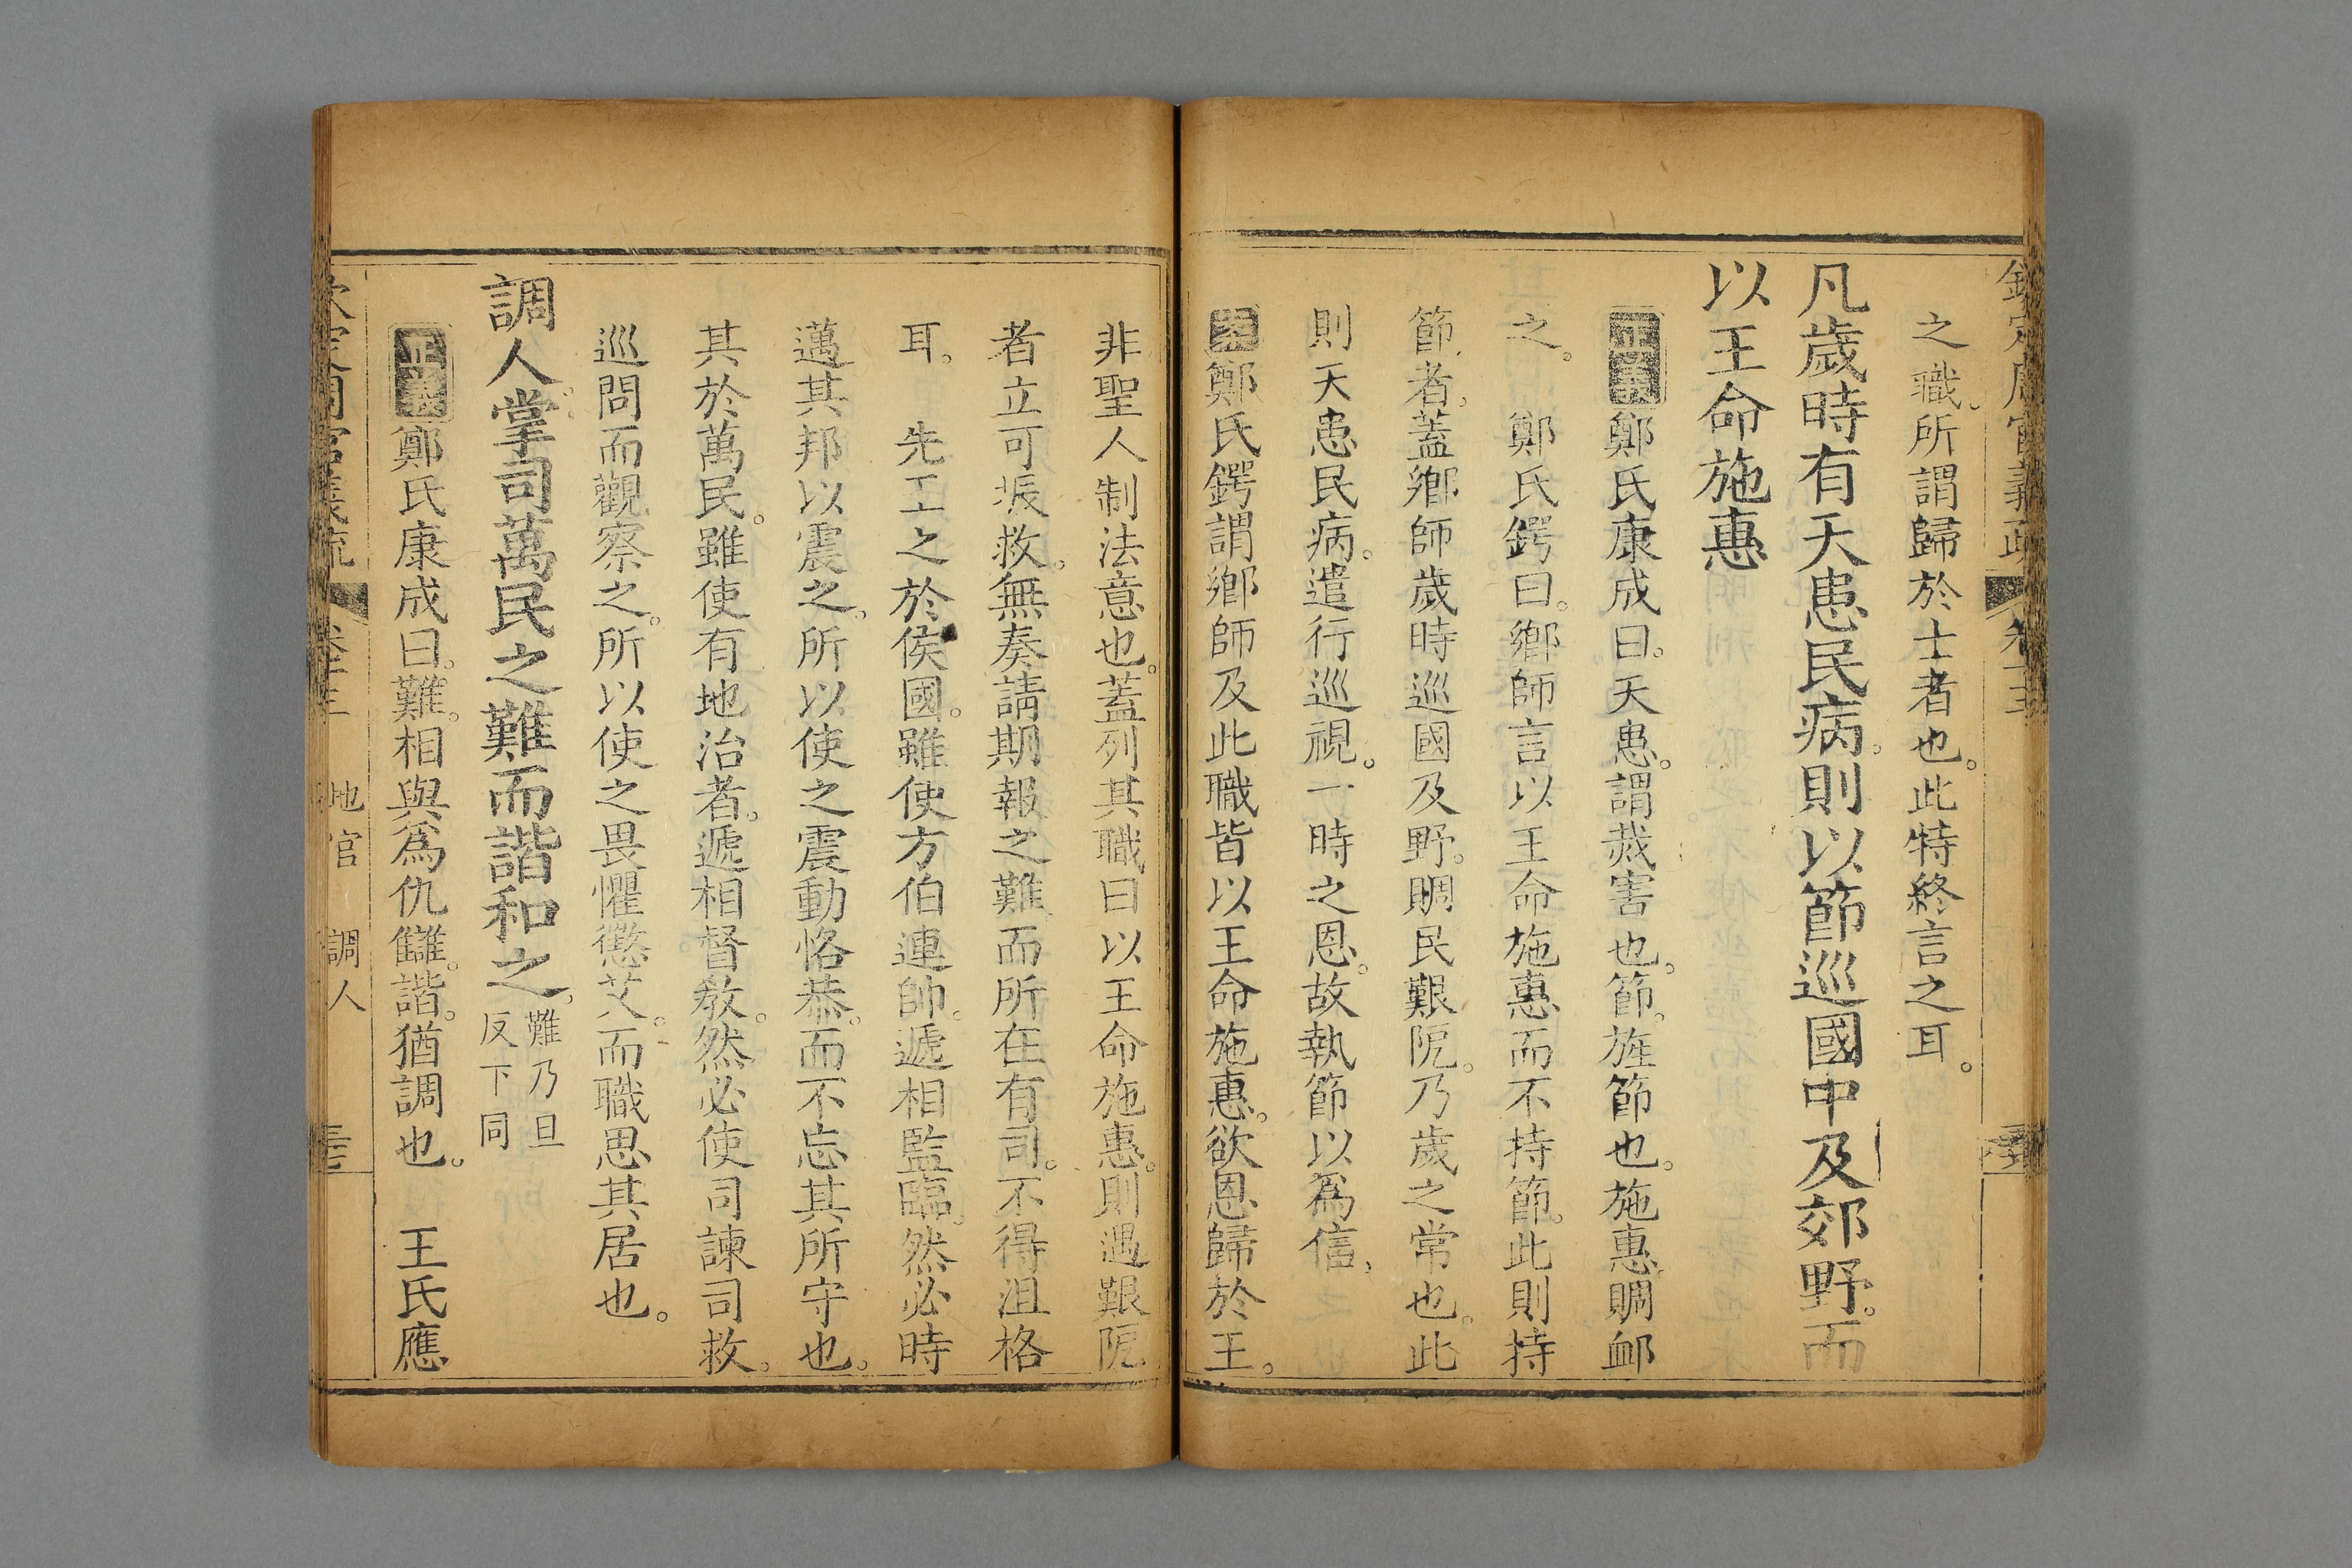 欽定周官義疏 卷十三
之職。所謂歸於士者也。此特終言之耳。
凡歲時有天患民病。則以節巡國中及郊野。而
以王命施惠
正義鄭氏康成曰。天患。謂烖害也。節。旌節也。施惠。賙卹
之。 鄭氏鍔曰。鄉師言以王命施惠而不持節。此則持
節者。蓋鄉師歲時巡國及野。賙民艱阨。乃歲之常也。此
則天患民病。遣行巡視。一時之恩。故執節以爲信。
鄭氏鍔謂鄉師及此職皆以王命施惠。欲恩歸於王。
非聖人制法意也。蓋列其職曰以王命施惠。則遇艱阨
者立可振救。無奏請期報之難而所在有司。不得沮格
耳。 先王之於侯國。雖使方伯連帥。遞相監臨。然必時
邁其邦以震之。所以使之震動恪恭。而不忘其所守也。
其於萬民。雖使有地治者。遞相督敎。然必使司諫司救。
巡問而觀察之。所以使之畏懼懲艾。而職思其居也。
調人。掌司萬民之難而諧和之。難乃旦
反下同
正義鄭氏康成曰。難。相與爲仇讎。諧。猶調也。 王氏應
欽定周官義疏 卷十三 地官 調人